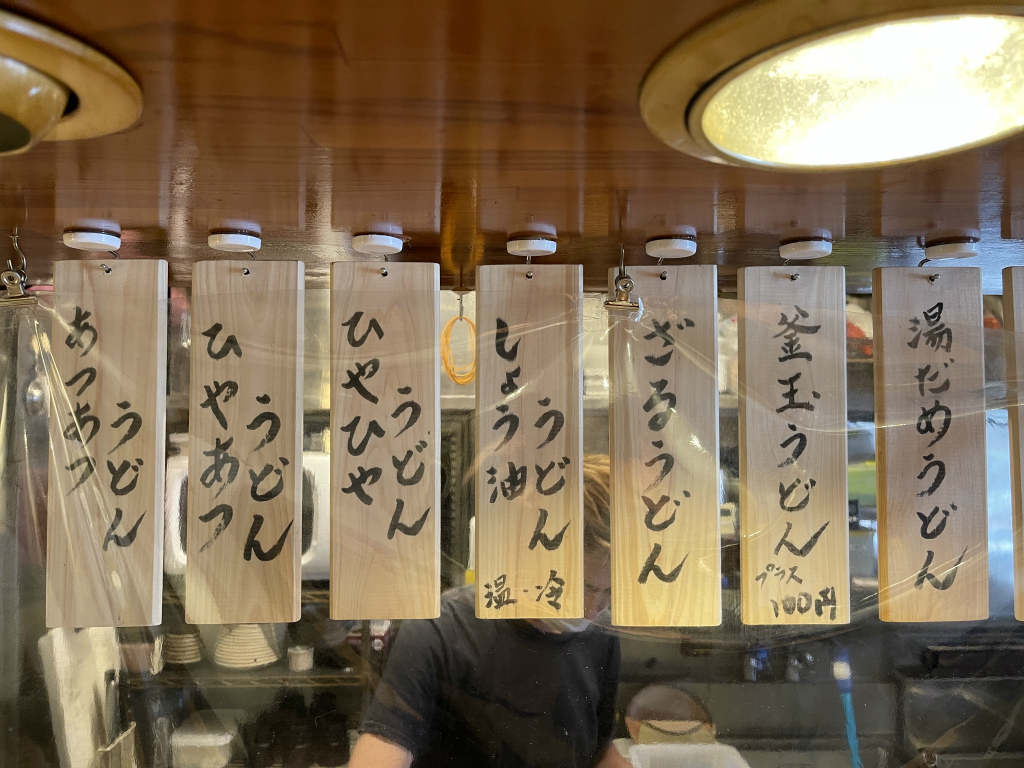 あつあつ
うどん
ひやあつ
うどん
ひやひや
うどん
しょう油
うどん
温・冷
ざるうどん
釜玉うどん
プラス
100円
湯だめうどん